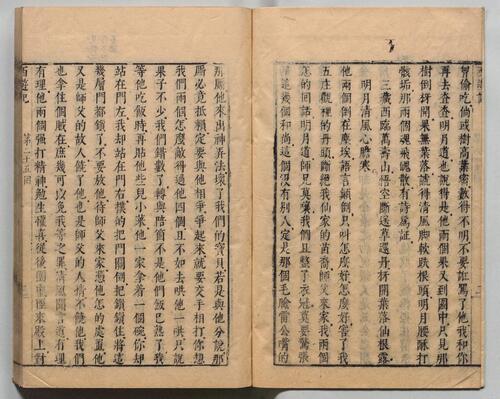 曾偷吃倘或樹高葉密數得不明不要誑罵了他我和你
再去查查明月道也說得是他兩個果又到園中只見那
樹倒枒開果無葉落諕得清風脚軟跌根頭明月腰酥打
骸垢那兩個魂飛魄散有詩為証
三藏西臨萬壽山悟空斷送草還丹枒開葉落仙根露
明月清風心膽寒
他兩個倒在塵埃語言顛倒只叫怎麼好怎麼好害了我
五庄觀裡的丹頭斷絕我仙家的苗裔師父來家我兩個
怎的回話明月道師兄莫嚷我們且整了衣冠莫要驚張
了幾個和尚這個沒有別人定是那個毛臉雷公嘴的
那廝他來出神弄法壞了我們的寶貝若是與他分說那
廝必竟抵賴定要與他相爭爭起來就要交手相打你想
我們兩個怎麼敵得過他四個且不如去哄他一哄只說
果子不少我們錯數了轉與陪個不是他們飯已熟了我
等他吃飯時再貼他些兒小菜他一家拿着一個碗你却
站在門左我却站在門右撲的把門關倒把鎖鎖住將這
幾層門都鎖了不要放他待師父來家憑他怎的處置他
又是師父的故人饒了他也是師父的人情不饒他我們
也拿住個賊在庶幾可以免我等之罪清風聞言道有理
有理他兩個強打精神勉生懽喜從後園中徑來殿上對
西遊記 第二十五回